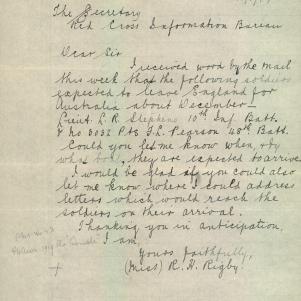 The Secretary
Red Cross Information Bureau
Dear Sir
I received word by the mail
this week that the following soldiers
expected to leave England for
Australia about December—
Lieut. L. R. Stephens 10th Inf. Batt.
Pte F. L. Pearson 48th Batt.
Could you let me know when, & by
what boat, they are expected to arrive.
I would be glad if you could also
let me know where I could address
letters which would reach the
soldiers on their arrival.
Thanking you in anticipation,
I am,
Yours faithfully,
(Miss) R. H. Rigby.